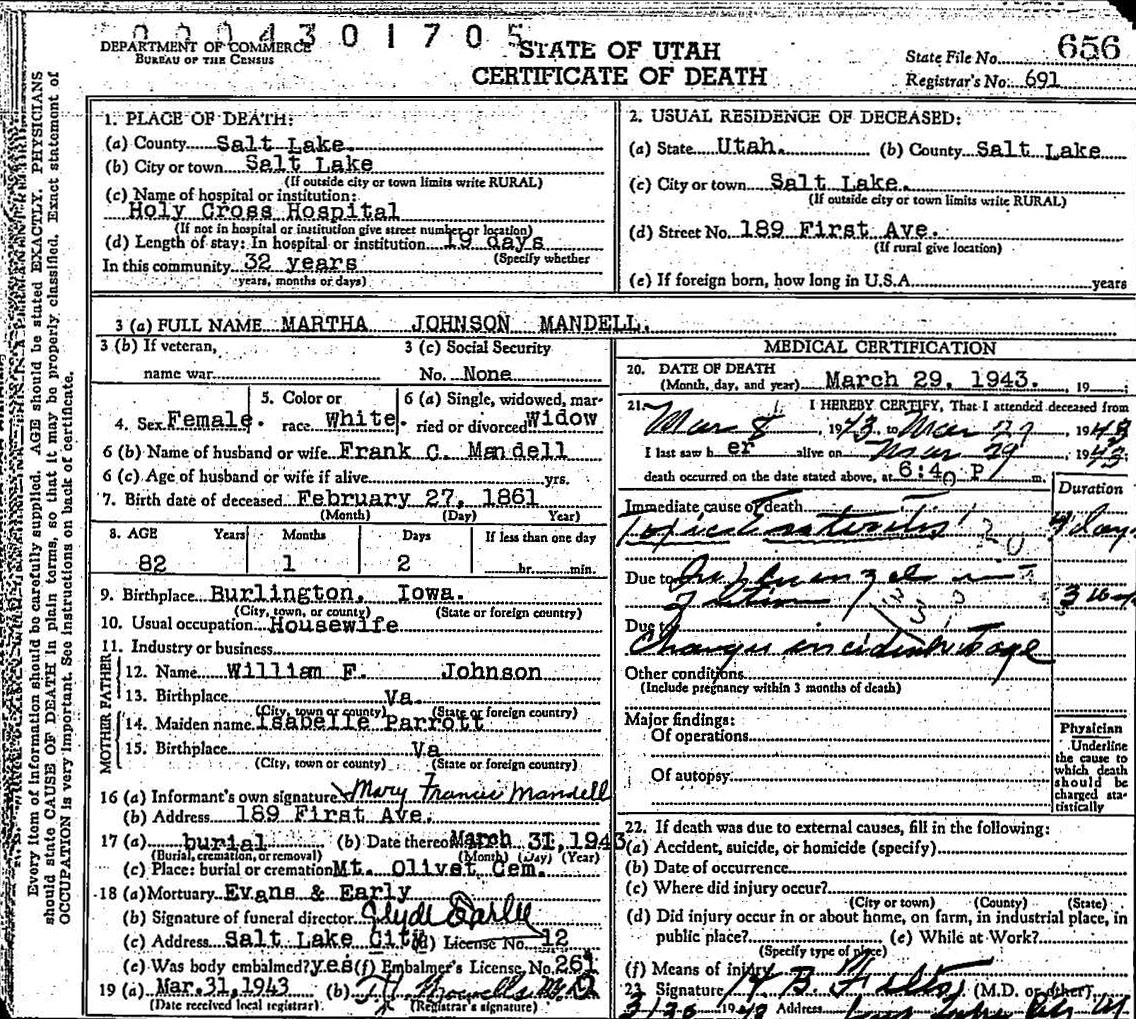 0004301705
DEPARTMENT OF COMMERCE
BUREAU OF THE CENSUS
STATE OF UTAH
CERTIFICATE OF DEATH
State File No. 656
Registrar's No. 691
Every item of information should be carefully supplied. AGE should be stated EXACTLY. PHYSICIANS
should state CAUSE OF DEATH in plain terms, so that it may be properly classified. Exact statement of
OCCUPATION is very important. See instructions on back of certificate.
1. PLACE OF DEATH:
(a) County Salt Lake.
(b) City or town Salt Lake
(If outside city or town limits write RURAL)
(c) Name of hospital or institution:
Holy Cross Hospital
(If not in hospital or institution give street number or location)
(d) Length of stay: In hospital or institution 19 days
(Specify whether
In this community 32 years
years, months or days)
2. USUAL RESIDENCE OF DECEASED:
(a) State Utah. (b) County Salt Lake
(c) City or town Salt Lake.
(If outside city or town limits write RURAL)
(d) Street No. 189 First Ave.
(If rural give location)
(e) If foreign born, how long in U.S.A. years
3 (a) FULL NAME MARTHA JOHNSON MANDELL.
3 (b) If veteran, 3 (c) Social Security
name war No. None
4. Sex Female. 5. Color or race White. 6 (a) Single, widowed, married or divorced Widow
6 (b) Name of husband or wife Frank C. Mandell
6 (c) Age of husband or wife if alive yrs.
7. Birth date of deceased February 27, 1861
(Month) (Day) Year)
8. AGE Years Months Days If less than one day
82 1 2 hr. min.
9. Birthplace Burlington, Iowa.
(City, town, or county) (State or foreign country)
10. Usual occupation Housewife
11. Industry or business
FATHER
12. Name William F. Johnson
13. Birthplace Va.
(City, town or county) (State or foreign country)
MOTHER
14. Maiden name Isabelle Parrott
15. Birthplace Va
(City, town or county) (State or foreign country)
16 (a) Informant's own signature Mary Francis Mandell
(b) Address 189 First Ave.
17 (a) burial (b) Date thereof March 31, 1943
(Burial, cremation, or removal) (Month) (Day) (Year)
(c) Place: burial or cremation Mt. Olivet Cem.
18 (a) Mortuary Evans & Early
(b) Signature of funeral director Clyde Earlee
(c) Address Salt Lake City (d) License No. 12
(e) Was body embalmed? yes (f) Embalmer's License No. 261
19 (a) Mar. 31, 1943 (b)
(Date received local registrar) (Registrar's signature)
MEDICAL CERTIFICATION
20. DATE OF DEATH
(Month, day, and year) March 29, 1943. 19
21. I HEREBY CERTIFY, That I attended deceased from
Mar 8, 1943, to Mar 29 1943
I last saw h er alive on Mar 29 1943
death occurred on the date stated above, at 6:40 P m.
Duration
Immediate cause of death
Due to
Due to
Changes incident to age
Other conditions
(Include pregnancy within 3 months of death)
Major findings:
Of operations
Of autopsy
Physician
Underline
the cause to
which death
should be
charged sta-
tistically
22. If death was due to external causes, fill in the following:
(a) Accident, suicide, or homicide (specify)
(b) Date of occurrence
(c) Where did injury occur?
(City or town) (County) (State)
(d) Did injury occur in or about home, on farm, in industrial place, in
public place? (e) While at Work?
(Specify type of place)
(f) Means of injury
23. Signature (M.D. or other)
Address